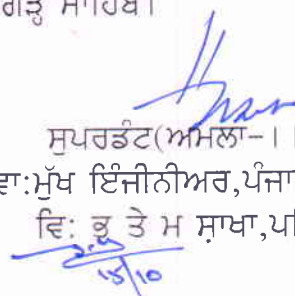 ਗੜ੍ਹ ਸਾਹਿਬ।
ਸੁਪਰਡੰਟ(ਅਮਲਾ-।
ਵਾ:ਮੁੱਖ ਇੰਜੀਨੀਅਰ,ਪੰਜਾ
ਵਿ: ਭ ਤੇ ਮ ਸ਼ਾਖਾ,ਪਟਿ
15/10